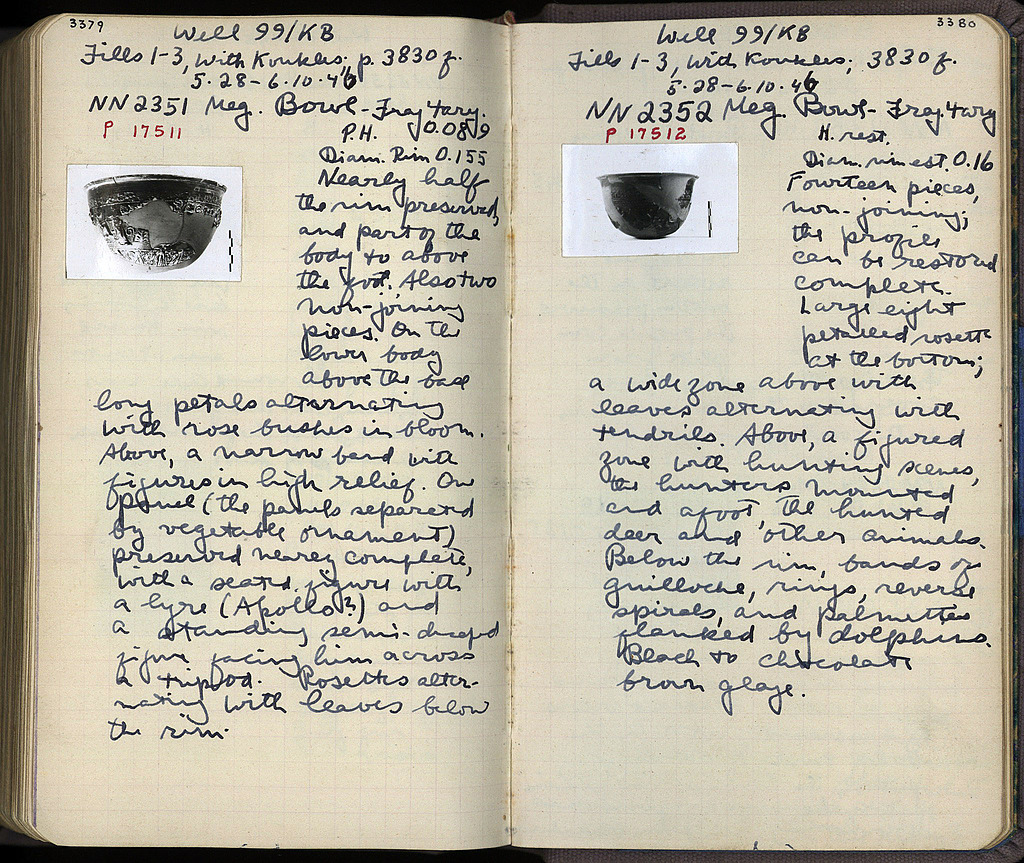 3379
Well 99/KB
Fills 1-3, with Koukles; p. 3830 f.
5.28-6.10.46
NN 2351 Meg. Bowl - Frag'tary.
P 17511
P.H. 0.089
Diam. Rim 0.155
Nearly half
the rim preserved,
and part of the
body to above
the foot. Also two
non-joining
pieces. On the
lower body
above the base
long petals alternating
with rose bushes in bloom.
Above, a narrow band with
figures in high relief. One
panel (the panels separated
by vegetable ornament)
preserved nearly complete,
with a seated figure with
a lyre (Apollo?) and
a standing semi-draped
figure facing him across
a tripod. Rosettes alter-
nating with leaves below
the rim.
3380
Well 99/KB
Fills 1-3, with Koukles; 3830 f.
5.28-6.10.46
NN 2352 Meg. Bowl - Frag'tary
P 17512
H. rest.
Diam. rim est. 0.16
Fourteen pieces,
non-joining;
the profile
can be restored
complete.
Large eight
petalled rosette
at the bottom;
a wide zone above with
leaves alternating with
tendrils. Above, a figured
zone with hunting scenes,
the hunters mounted
and afoot, the hunted
deer and other animals.
Below the rim, bands of
guilloche, rings, reverse
spirals, and palmettes
flanked by dolphins.
Black to chocolate
brown glaze.